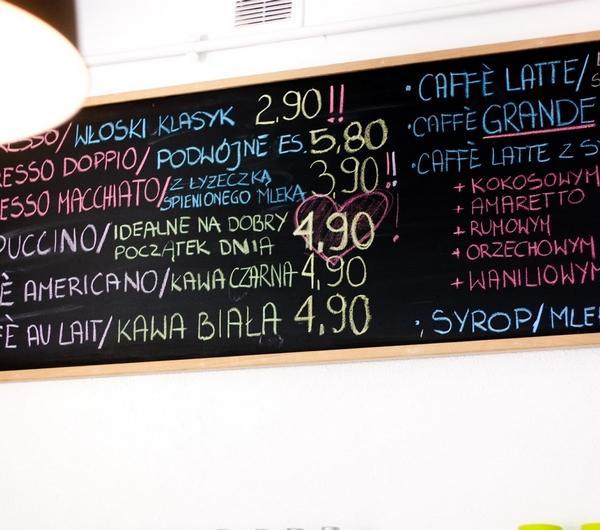 RESSO/WŁOSKI KLASYK 2.90!!
RESSO DOPPIO/PODWÓJNE ES. 5,80
ESSO MACCHIATO/Z ŁYŻECZKĄ SPIENIONEGO MLEKA 3,90!!
PUCCINO/IDEALNE NA DOBRY POCZĄTEK DNIA 4,90!
È AMERICANO/KAWA CZARNA 4,90
FÈ AU LAIT/KAWA BIAŁA 4,90
· CAFFÈ LATTE/
· CAFFÈ GRANDE
· CAFFÈ LATTE Z S
+ KOKOSOWYM
+ AMARETTO
+ RUMOWYM
+ ORZECHOWYM
+ WANILIOWYM
· SYROP/MLE